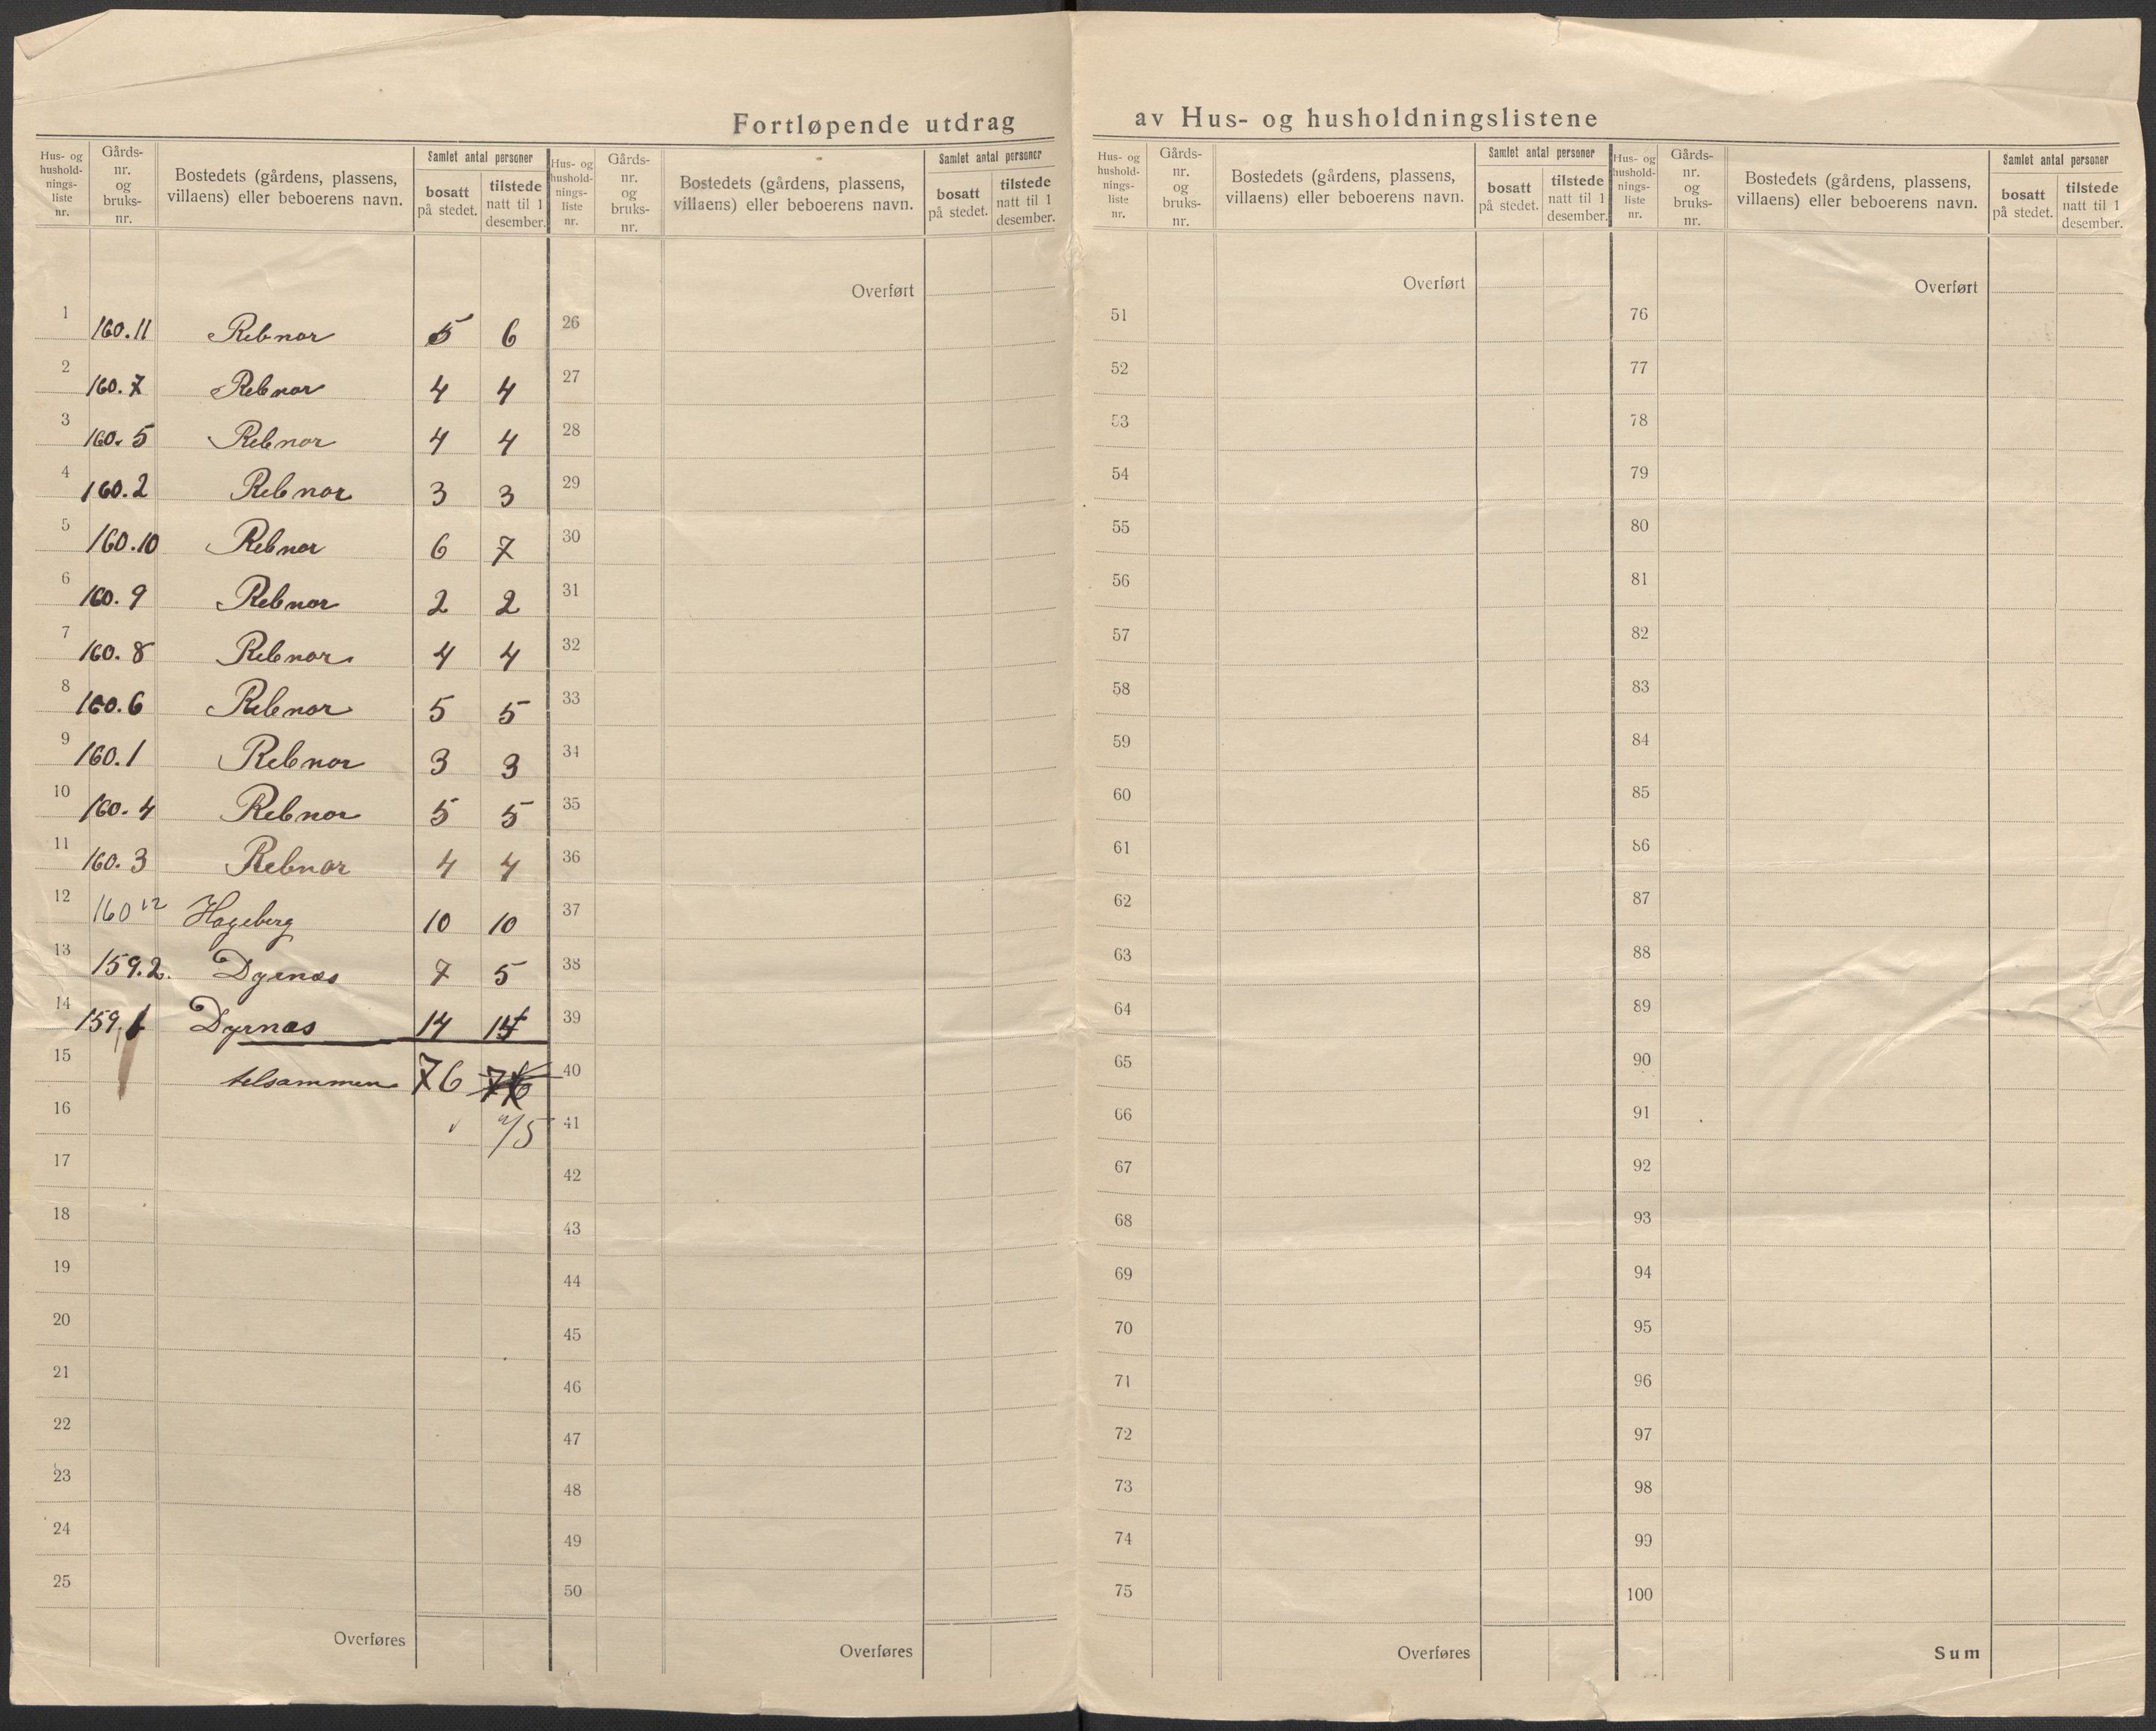 Fortløpende utdrag av Hus- og husholdningslistene
Hus- og hushold-nings-liste nr. Gårds-nr. og bruks-nr. Bostedets (gårdens, plassens, villaens) eller beboerens navn. Samlet antal personer bosatt på stedet. tilstede natt til 1 desember.
Hus- og hushold-nings-liste nr. Gårds-nr. og bruks-nr. Bostedets (gårdens, plassens, villaens) eller beboerens navn. Samlet antal personer bosatt på stedet. tilstede natt til 1 desember.
Hus- og hushold-nings-liste nr. Gårds-nr. og bruks-nr. Bostedets (gårdens, plassens, villaens) eller beboerens navn. Samlet antal personer bosatt på stedet. tilstede natt til 1 desember.
Hus- og hushold-nings-liste nr. Gårds-nr. og bruks-nr. Bostedets (gårdens, plassens, villaens) eller beboerens navn. Samlet antal personer bosatt på stedet. tilstede natt til 1 desember.
Overført Overført Overført
1 160.11 Rebnor 5 6 26 51 76
2 160.7 Rebnor 4 4 27 52 77
3 160.5 Rebnor 4 4 28 53 78
4 160.2 Rebnor 3 3 29 54 79
5 160.10 Rebnor 6 7 30 55 80
6 160.9 Rebnor 2 2 31 56 81
7 160.8 Rebnor 4 4 32 57 82
8 160.6 Rebnor 5 5 33 58 83
9 160.1 Rebnor 3 3 34 59 84
10 160.4 Rebnor 5 5 35 60 85
11 160.3 Rebnor 4 4 36 61 86
12 160 12 Hageberg 10 10 37 62 87
13 159.2. Dyrnes 7 5 38 63 88
14 159.1 Dyrnæs 14 14 39 64 89
15 telsammen 76 76 40 65 90
16 41 66 91
17 42 67 92
18 43 68 93
19 44 69 94
20 45 70 95
21 46 71 96
22 47 72 97
23 48 73 98
24 49 74 99
25 50 75 100
Overføres Overføres Overføres Sum